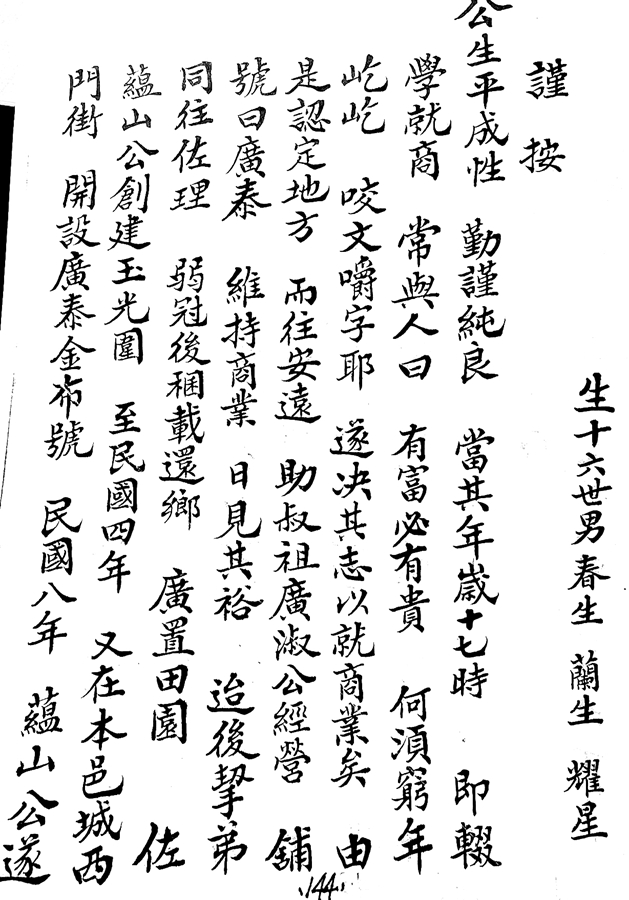 生十六世男春生 蘭生 耀星
謹按
公生平成性 勤謹純良 當其年歲十七時 即輟
學就商 常與人曰 有富必有貴 何須窮年
屹屹 咬文嚼字耶 遂決其志以就商業矣 由
是認定地方 而往安遠 助叔祖廣淑公經營 舖
號曰廣泰 維持商業 日見其裕 迨後挈弟
同往佐理 弱冠後稛載還鄉 廣置田園 佐
蘊山公創建玉光圍 至民國四年 又在本邑城西
門街 開設廣泰金布號 民國八年 蘊山公遂
144